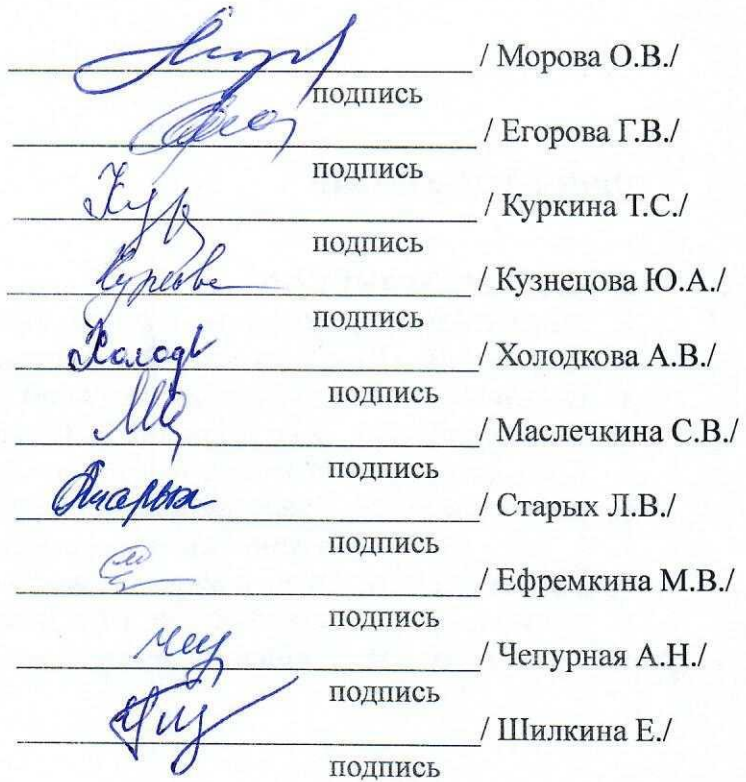 / Морова О.В./
подпись
/ Егорова Г.В./
подпись
/ Куркина Т.С./
подпись
/ Кузнецова Ю.А./
подпись
Холодк / Холодкова А.В./
подпись
/ Маслечкина С.В./
подпись
Старых / Старых Л.В./
подпись
/ Ефремкина М.В./
подпись
/ Чепурная А.Н./
подпись
/ Шилкина Е./
подпись